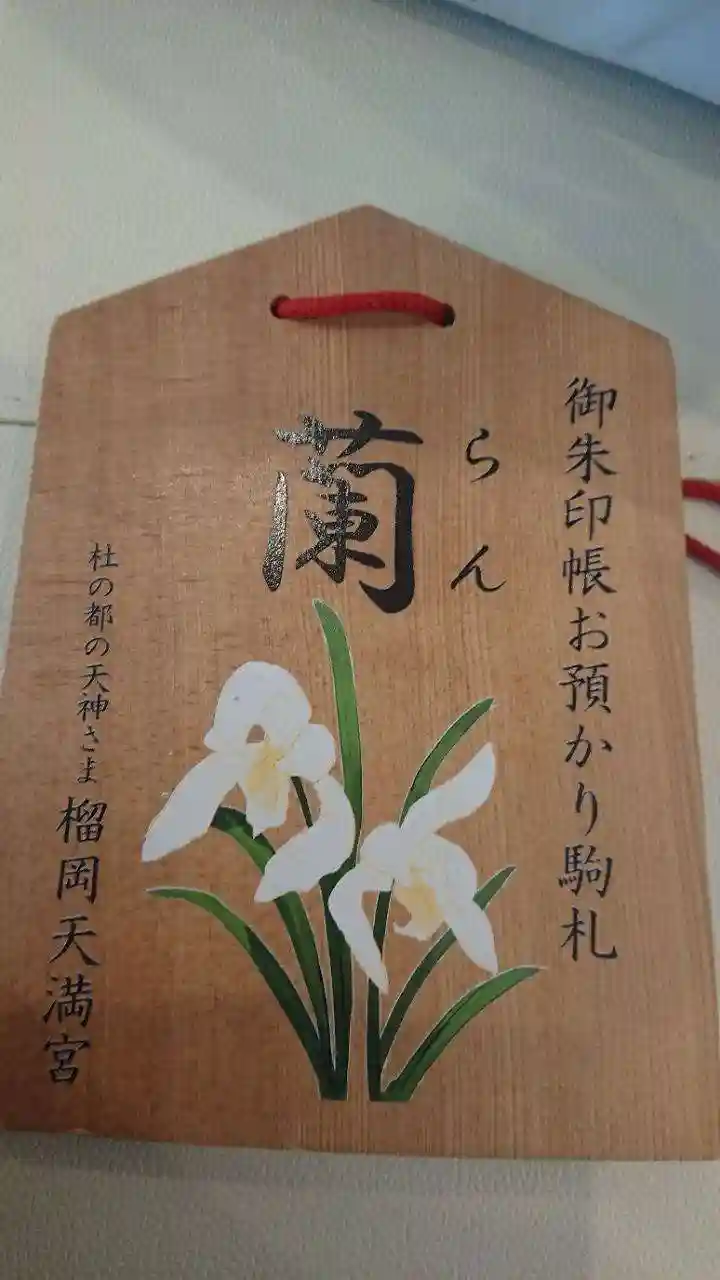 御朱印帳お預かり駒札
らん
蘭
杜の都の天神さま 榴岡天満宮